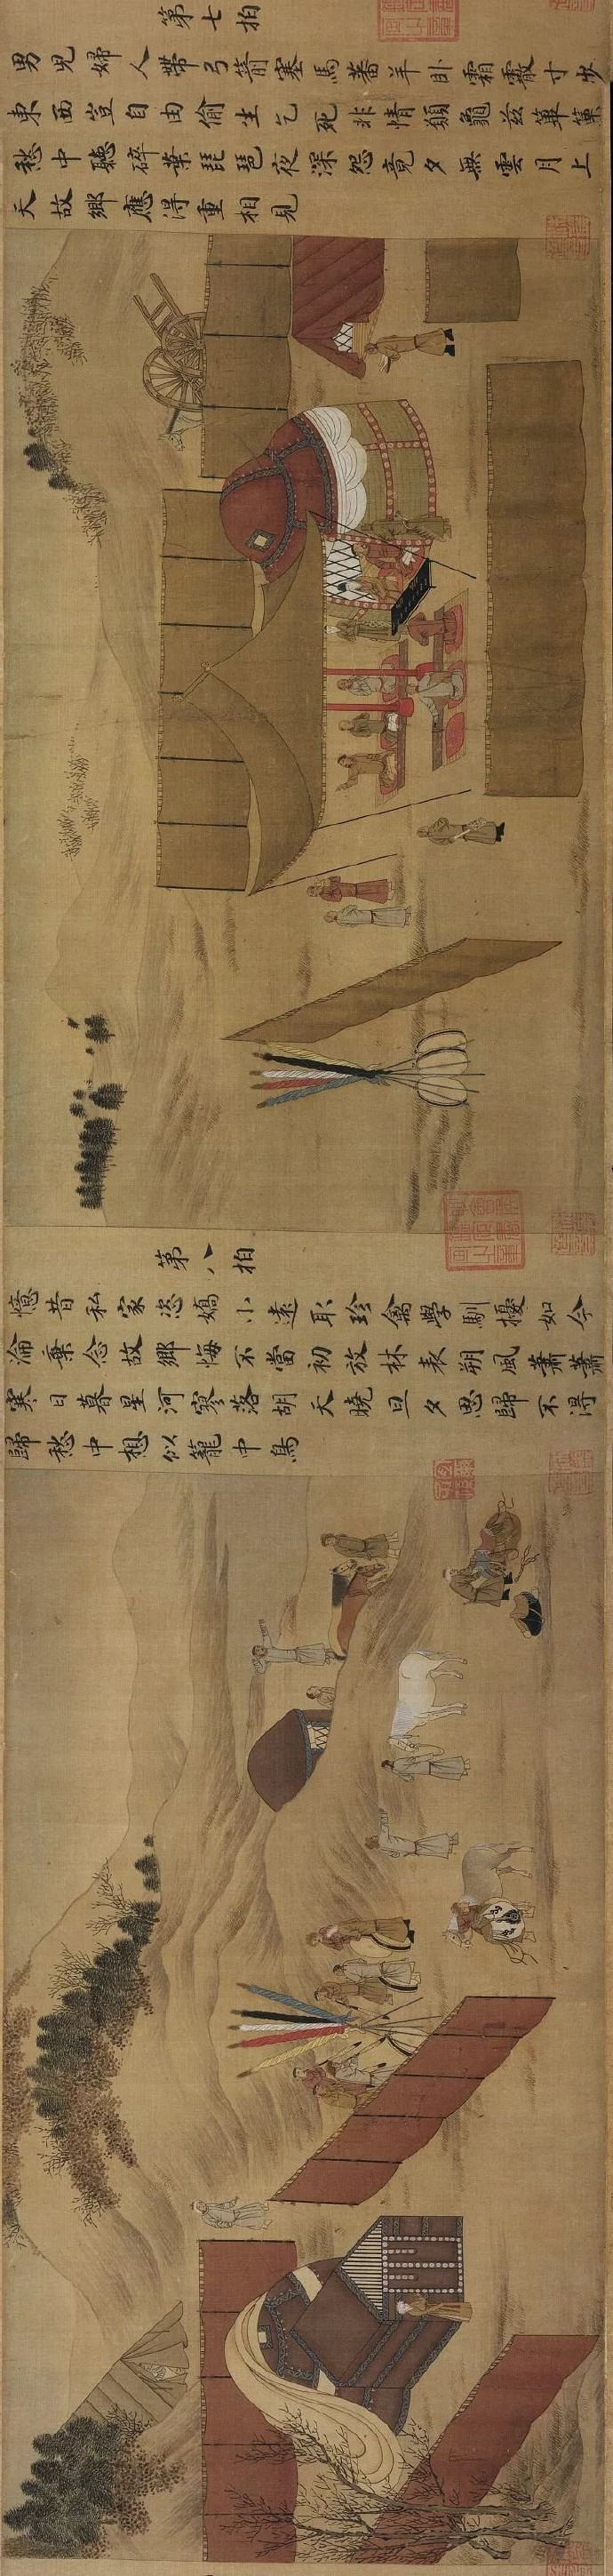 第七拍
男兒婦人帶弓箭塞馬蕃羊臥霜霰寸步
東西豈自由偷生乞死非情願龜茲篳篥
愁中聽碎葉琵琶夜深怨竟夕無雲月上
天故鄉應得重相見
第八拍
憶昔私家恣嬌小遠取珍禽學馴擾如今
淪棄念故鄉悔不當初放林表朔風蕭蕭
寒日暮星河寥落胡天曉旦夕思歸不得
歸愁中想似籠中鳥